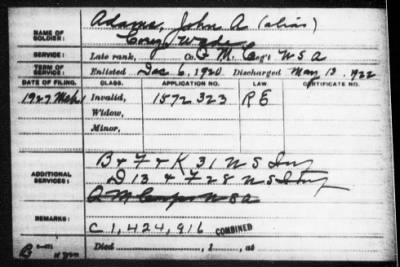 Adams, John A (alias)
NAME OF SOLDIER:
Corey Wade
SERVICE:
Late rank, Co. Q M C Reg't U S A
TERM OF SERVICE
Enlisted Dec 6, 1920 Discharged May 13, 1922
DATE OF FILING. CLASS. APPLICATION NO. LAW. CERTIFICATE NO.
1927 Mch 1 Invalid, 1572 323 R E
Widow,
Minor,
ADDITIONAL SERVICES:
B & F & K 31 U S Inf
D 13 & F 28 U S Inf
Q M Corps U S A
REMARKS:
C 1,424,916 COMBINED
Died , 1 , at